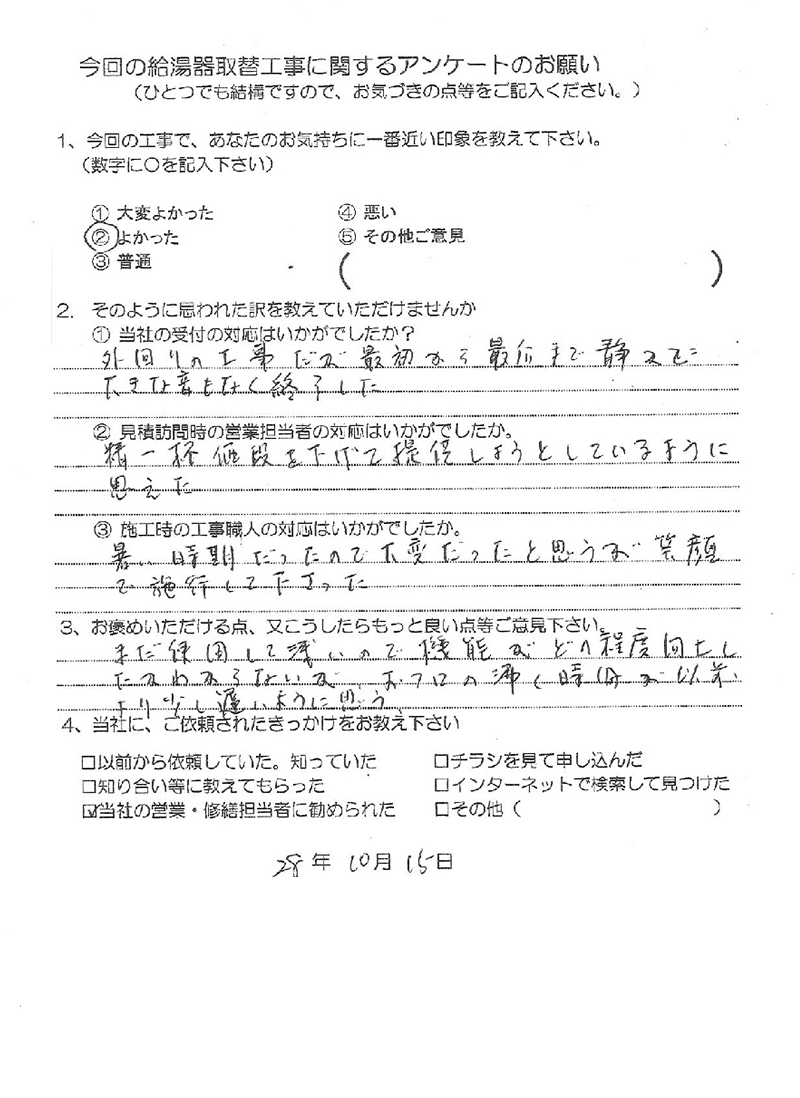 今回の給湯器取替工事に関するアンケートのお願い
（ひとつでも結構ですので、お気づきの点等をご記入ください。）
1、今回の工事で、あなたのお気持ちに一番近い印象を教えて下さい。
（数字に〇を記入下さい）
① 大変よかった ④ 悪い
② よかった ⑤ その他ご意見
③ 普通 （ ）
2. そのように思われた訳を教えていただけませんか
① 当社の受付の対応はいかがでしたか？
外回りの工事だが最初から最后まで静かで
大きな音もなく終了した
② 見積訪問時の営業担当者の対応はいかがでしたか。
精一杯値段を下げて提供しようとしているように
思えた
③ 施工時の工事職人の対応はいかがでしたか。
暑い時期だったので大変だったと思うが笑顔
で施行して下さった
3、お褒めいただける点、又こうしたらもっと良い点等ご意見下さい。
まだ使用して浅いので機能がどの程度向上し
たかわからないが、おフロの沸く時間が以前
より少し遅いように思う
4、当社に、ご依頼されたきっかけをお教え下さい
□以前から依頼していた。知っていた □チラシを見て申し込んだ
□知り合い等に教えてもらった □インターネットで検索して見つけた
☑当社の営業・修繕担当者に勧められた □その他（ ）
28年 10月 15日